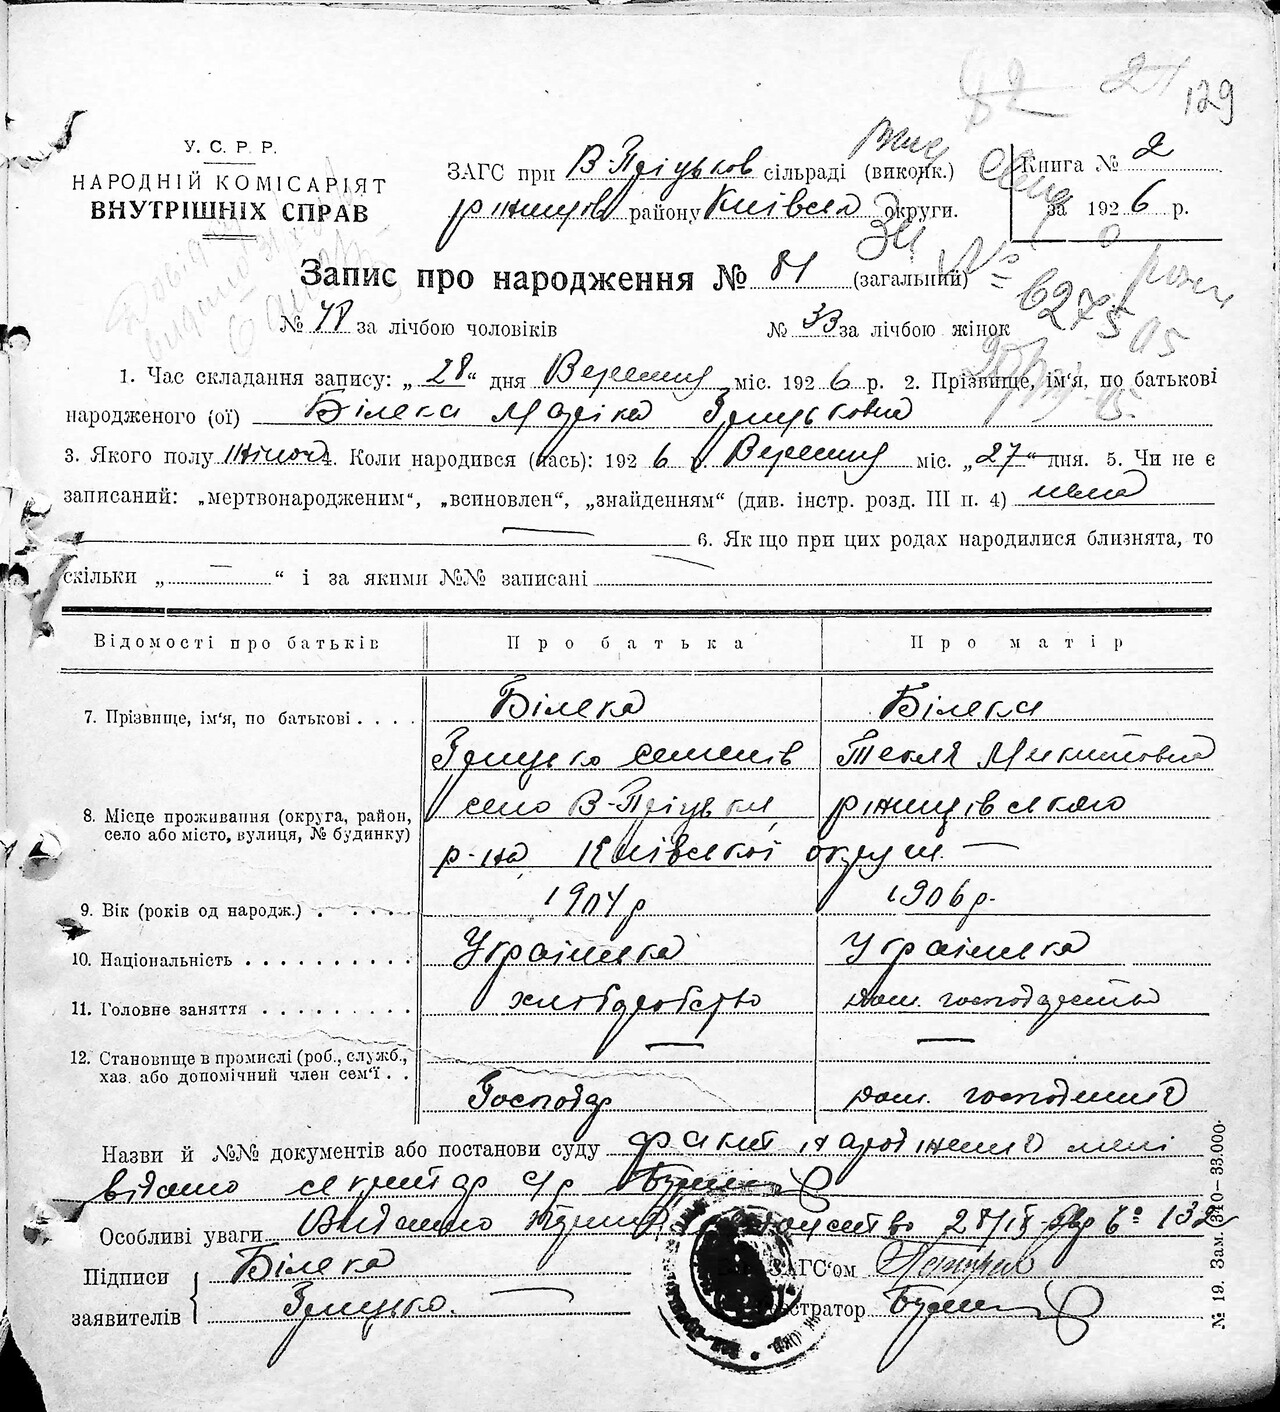 129
У. С. Р. Р.
НАРОДНІЙ КОМІСАРІЯТ
ВНУТРІШНІХ СПРАВ
ЗАГС при В-Пріцьков сільраді (виконк.)
ржищів району Київська округи.
Книга № 2
за 1926 р.
Запис про народження № 81 (загальний)
№ 48 за лічбою чоловіків № 33 за лічбою жінок
1. Час складання запису: „28“ дня Вересня міс. 1926 р. 2. Прізвище, ім'я, по батькові
народженого (ої) Білека Марія Грицьковна
3. Якого полу жіноч 4. Коли народився (лась): 1926 р. Вересня міс. „27“ дня. 5. Чи не є
записаний: „мертвонародженим“, „всиновлен“, „знайденням“ (див. інстр. розд. III п. 4) нема
6. Якщо при цих родах народилися близнята, то
скільки „ — “ і за якими №№ записані
Відомості про батьків Про батька Про матір
7. Прізвище, ім'я, по батькові . . . . Білека Білека
Грицько Семенів Текля Микитовна
8. Місце проживання (округа, район, село або місто, вулиця, № будинку) село В-Пріцьки, ржищівського
р-на Київської округи. —
9. Вік (років од народж.) . . . . . 1904 р 1906 р.
10. Національність . . . . . . . . . . Українка Українка
11. Головне заняття . . . . . . . . . хліборобство дом. господарство
12. Становище в промислі (роб., служб., — —
хаз. або допомічний член сем'ї . . Господар дом. господиня
Назви й №№ документів або постанови суду факт народження мені
відомо секретар с/р
Особливі уваги Видано 28/IX 132
Підписи Білека ЗАГС'ом
заявителів Грицько. —
№ 19. Зам. 3140—33.000.